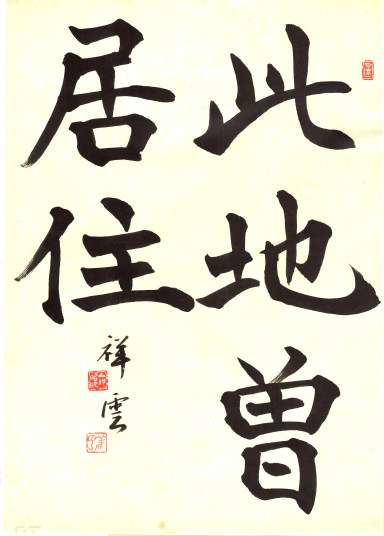 此地曽
居住
祥雲